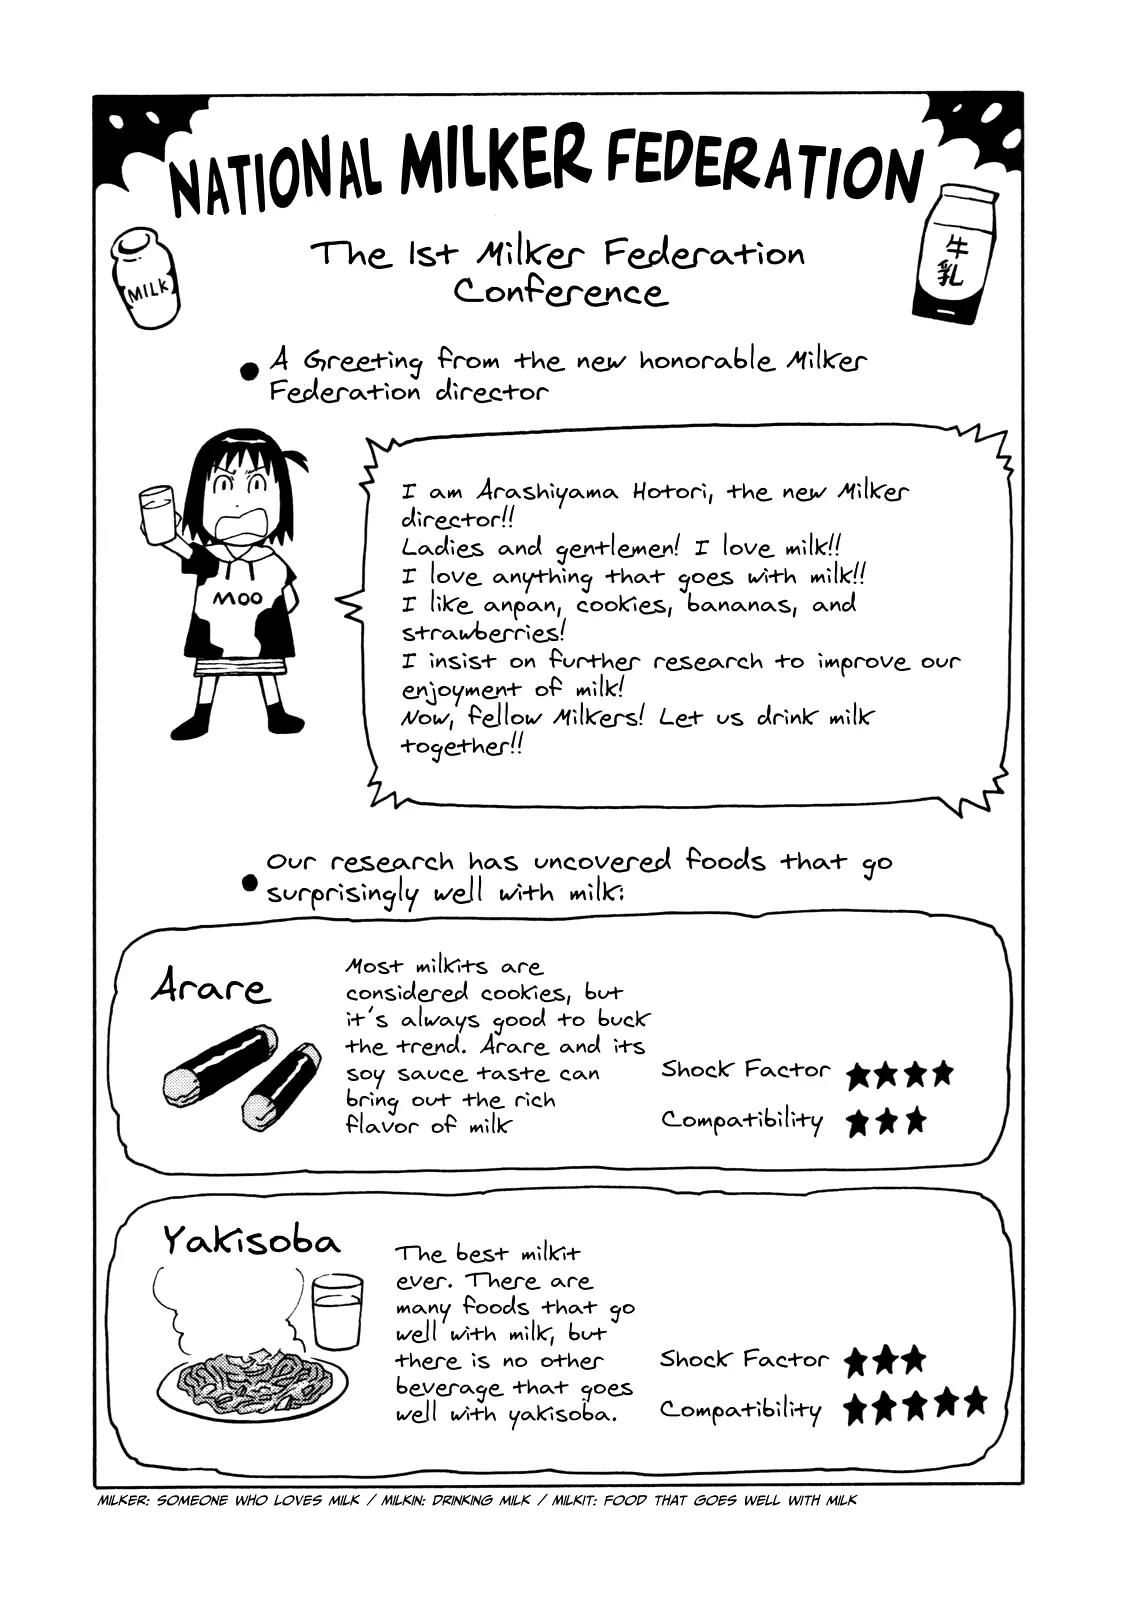 NATIONAL MILKER FEDERATION
The 1st Milker Federation
Conference
MILK
牛
乳
A Greeting from the new honorable Milker
Federation director
MOO
I am Arashiyama Hotori, the new Milker
director!!
Ladies and gentlemen! I love milk!!
I love anything that goes with milk!!
I like anpan, cookies, bananas, and
strawberries!
I insist on further research to improve our
enjoyment of milk!
Now, fellow Milkers! Let us drink milk
together!!
Our research has uncovered foods that go
surprisingly well with milk:
Arare
Most milkits are
considered cookies, but
it's always good to buck
the trend. Arare and its
soy sauce taste can
bring out the rich
flavor of milk
Shock Factor ★★★★
Compatibility ★★★
Yakisoba
The best milkit
ever. There are
many foods that go
well with milk, but
there is no other
beverage that goes
well with yakisoba.
Shock Factor ★★★
Compatibility ★★★★★
MILKER: SOMEONE WHO LOVES MILK / MILKIN: DRINKING MILK / MILKIT: FOOD THAT GOES WELL WITH MILK